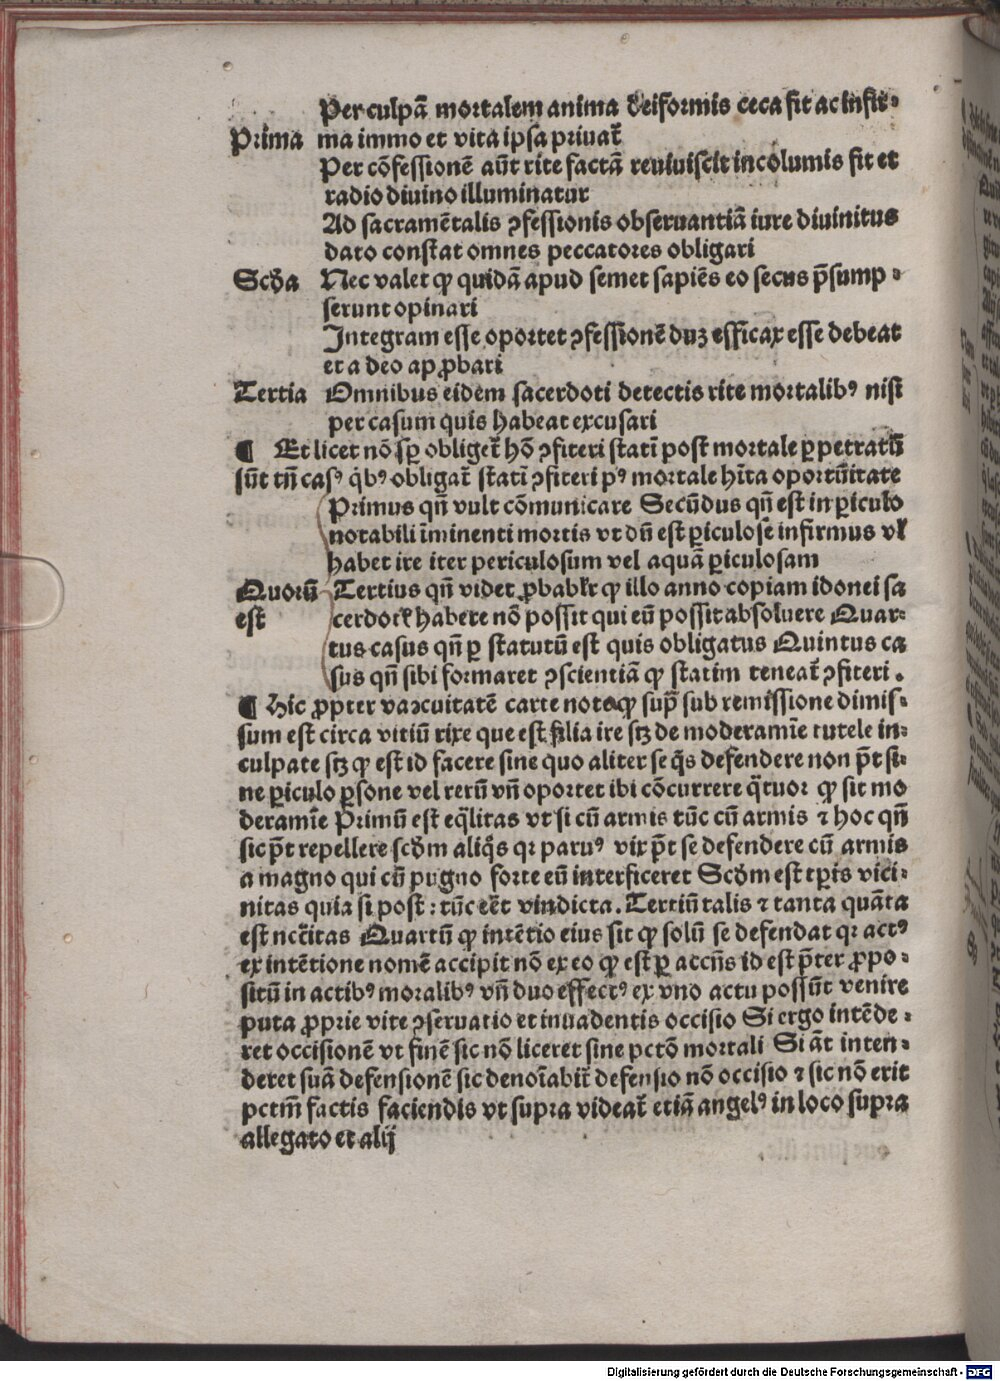 Per culpā mortalem anima deiformis ceca fit ac infir⸗
Prima ma immo et vita ipsa priuat᷑
Per cōfessionē aūt rite factā reuiuiscit incolumis fit et
radio diuino illuminatur
Ad sacramētalis ꝯfessionis obseruantiā iure diuinitus
dato constat omnes peccatores obligari
Scḋa Nec valet ꝙ quidā apud semet sapiēs eo secus p̄sump⸗
serunt opinari
Integram esse oportet ꝯfessionē duꝫ efficax esse debeat
et a deo ap ꝓbari
Tertia Omnibus eidem sacerdoti detectis rite mortalibꝰ nisi
per casum quis habeat excusari
¶ Et licet nō sꝑ obliget᷑ hō ꝯfiteri statī post mortale ꝑpetratū
sūt tn̄ casꝰ q̇bꝰ obligat᷑ statī ꝯfiteri pꝰ mortale hīta oportūitate
Primus qn̄ vult cōmunicare Secūdus qn̄ est in ꝑiculo
notabili īminenti mortis vt dn̄ est ꝑiculose infirmus vl̕
habet ire iter periculosum vel aquā ꝑiculosam
Quorū Tertius qn̄ videt ꝓbabl̕r ꝙ illo anno copiam idonei sa
est cerdot᷑ habere nō possit qui eū possit absoluere Quar⸗
tus casus qn̄ ꝑ statutū est quis obligatus Quintus ca
sus qn̄ sibi formaret ꝯscientiā ꝙ statim teneat᷑ ꝯfiteri .
¶ Hic ꝓpter vacuitatē carte nota ꝙ sup̄ sub remissione dimis⸗
sum est circa vitiū rixe que est filia ire sꝫ de moderamīe tutele in⸗
culpate sꝫ ꝙ est id facere sine quo aliter se q̇s defendere non p̄t si⸗
ne ꝑiculo ꝑsone vel rerū vn̄ oportet ibi cōcurrere q̄tuor ꝙ sit mo
deramīe Primū est eq̄litas vt si cū armis tūc cū armis ⁊ hoc qn̄
sic p̄t repellere scḋm aliq̇s qꝛ paruꝰ vix p̄t se defendere cū armis
a magno qui cū pugno forte eū interficeret Scḋm est tp̄is vici⸗
nitas quia si post : tūc eēt vindicta. Tertiū talis ⁊ tanta quāta
est nccītas Quartū ꝙ intētio eius sit ꝙ solū se defendat qꝛ actꝰ
ex intētione nomē accipit nō ex eo ꝙ est ꝑ accn̄s id est p̄ter ꝓpo⸗
sitū in actibꝰ moralibꝰ vn̄ duo effectꝰ ex vno actu possūt venire
puta ꝓprie vite ꝯseruatio et inuadentis occisio Si ergo intēde⸗
ret occisionē vt finē sic nō liceret sine pctō mortali Si āt inten⸗
deret suā defensionē sic denoīabit᷑ defensio nō occisio ⁊ sic nō erit
pctm̄ factis faciendis vt supra videat᷑ etiā angelꝰ in loco supra
allegato et alij
Digitalisierung gefördert durch die Deutsche Forschungsgemeinschaft - DFG